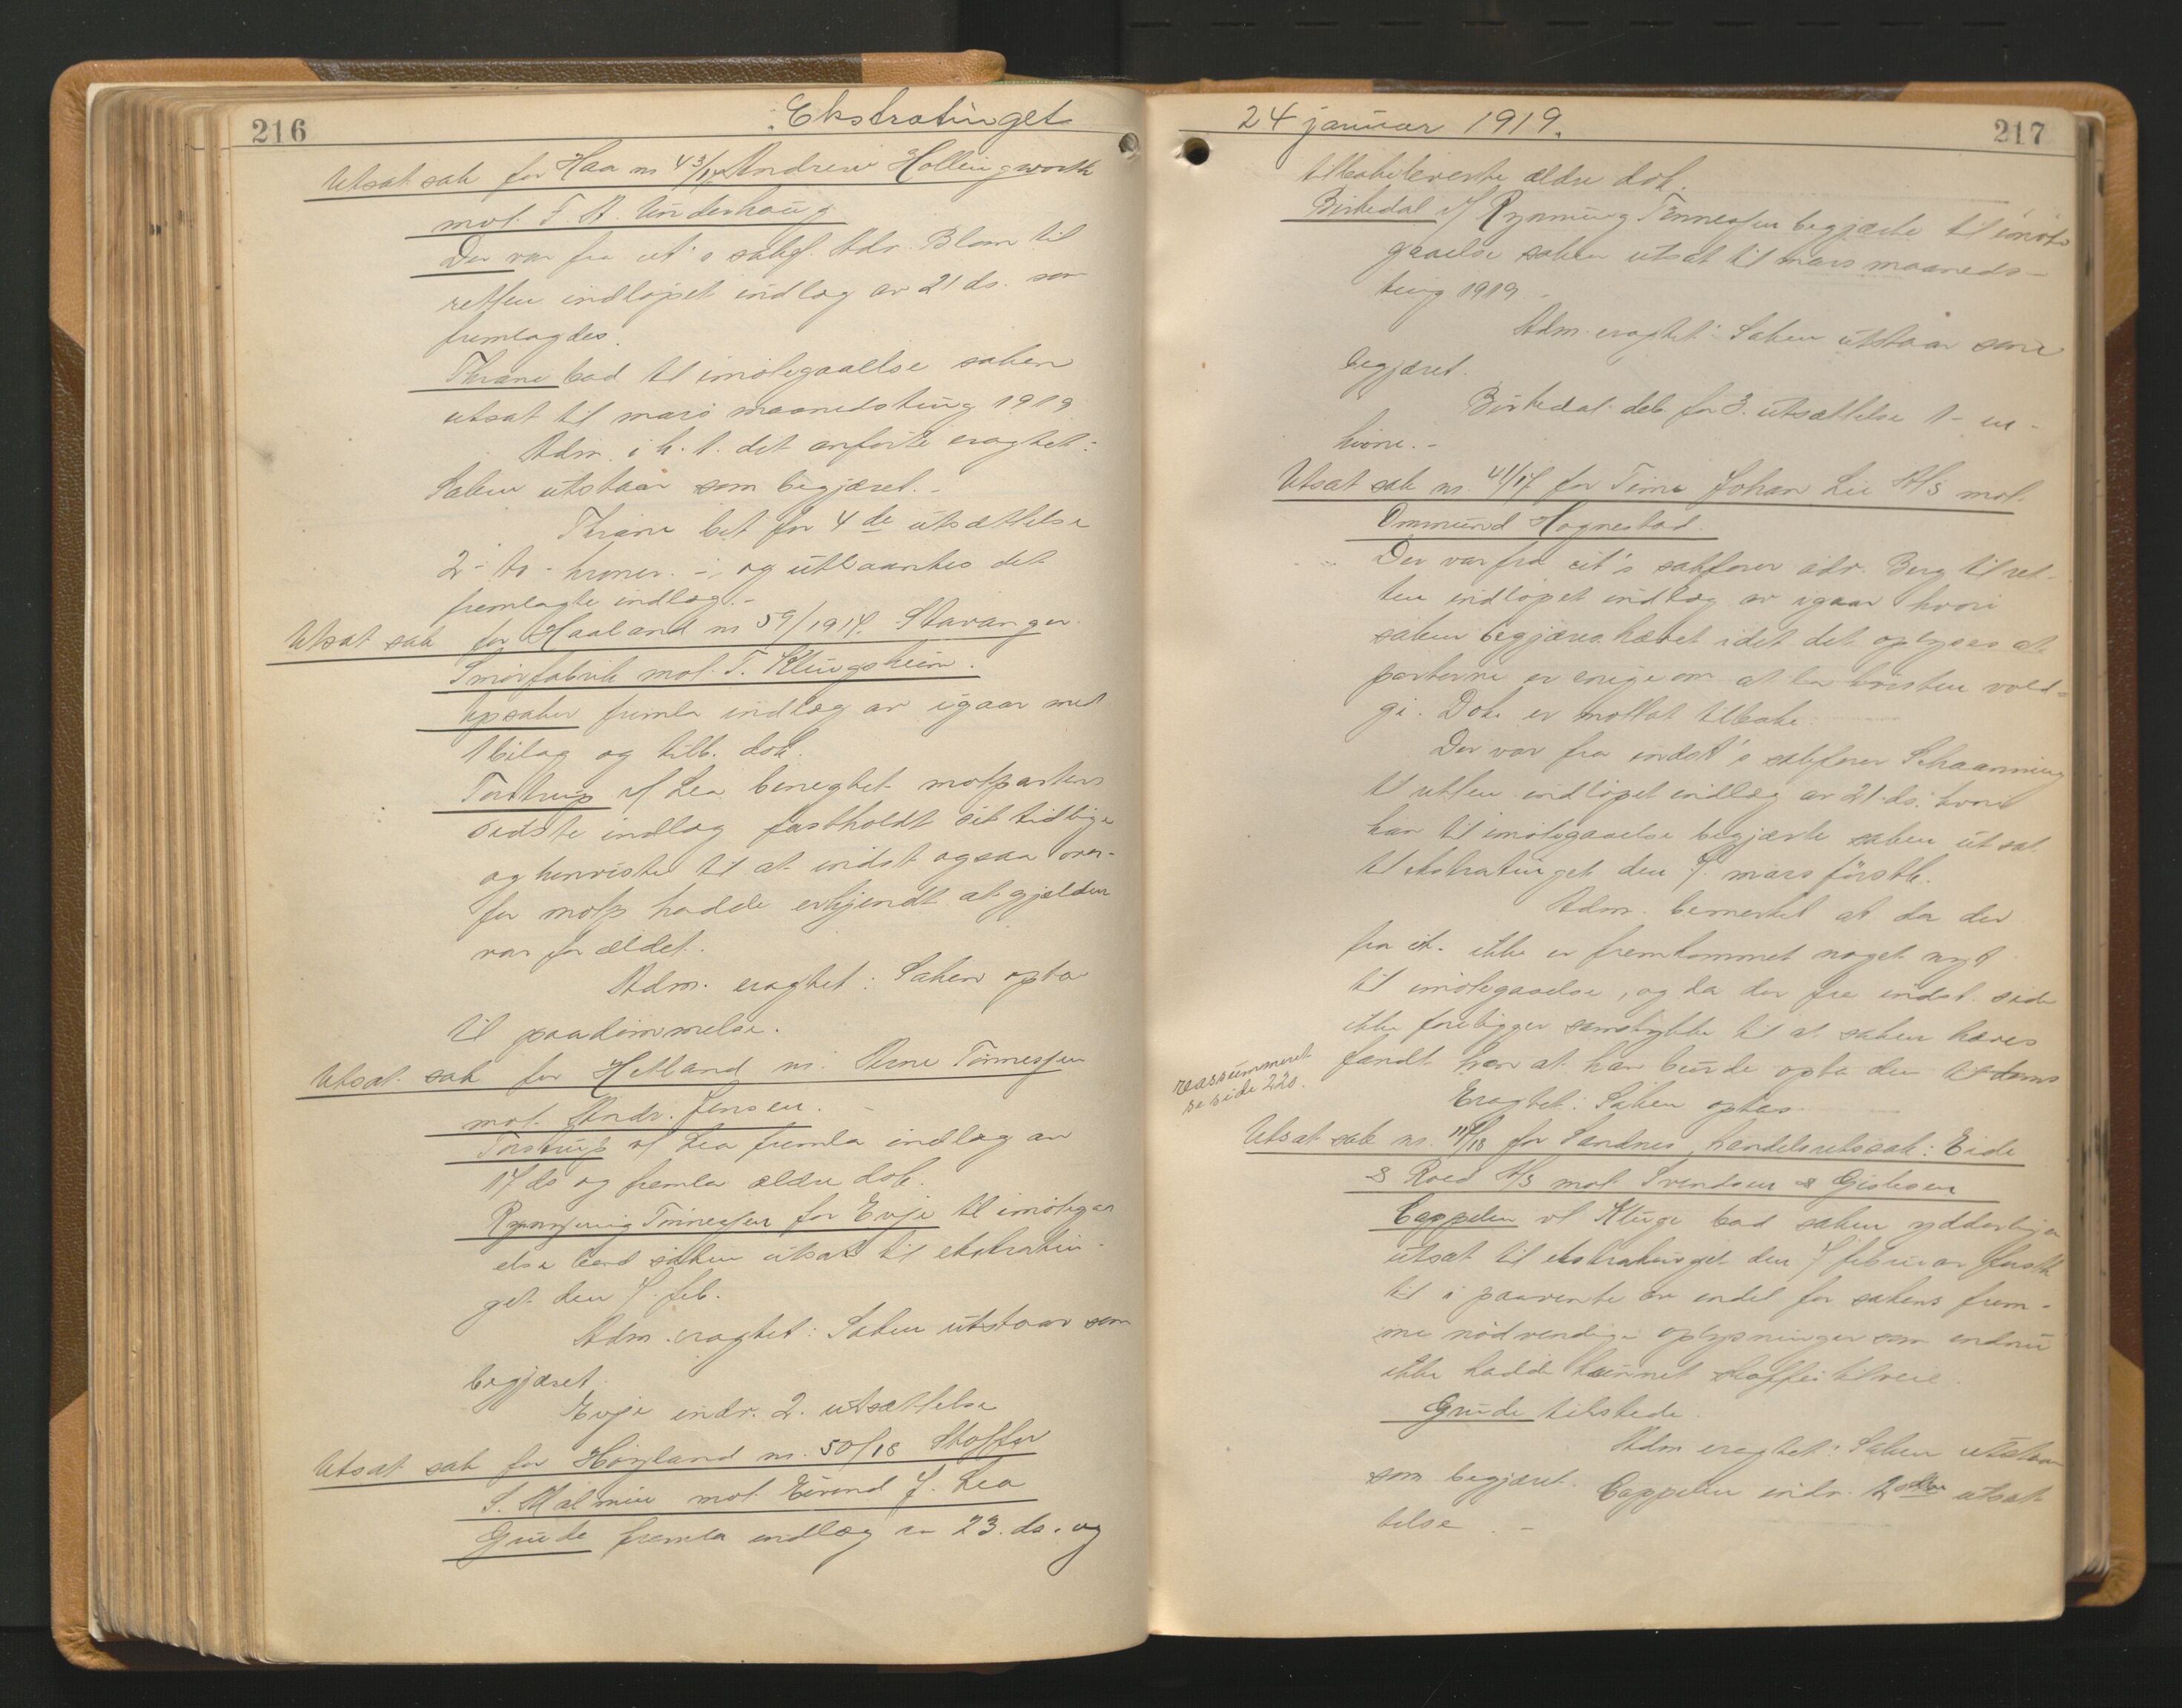 216
Ekstratinget
Utsat sak for Haa nr 43/17 Andrew Hollingworth
mot F. A. Underhaug
Der var fra cit's sakf. Adr. Blom til
retten indløpet indlæg av 21 ds. som
fremlagdes.
Thrane bad til imøtegaaelse saken
utsat til mars maanedsting 1919
Adm. i h. t. det anførte eragtet:
Saken utstaar som begjæret. -
Thrane bet for 4de utsættelse
2 - to - kroner. - og utlaantes det
fremlagte indlæg. -
Utsat sak for Haaland nr 59/1917. Stavanger
Smørfabrik mot T. Klungsheim.
Opsaker fremla indlæg av igaar med
1 bilag og tillb. dok.
Torstrup v/ Lea benegtet motpartens
sidste indlæg fastholdt sit tidlige
og henviste til at indst. ogsaa over-
for motp hadde erkjendt at gjælden
var forældet.
Adm. eragtet: Saken optas
til paadømmelse.
Utsat sak for Hetland nr. Arne Tønnessen
mot Andr. Jensen. -
Torstrup v/ Lea fremla indlæg av
17 ds og fremla ældre dok.
Rynning Tønnessen for Evje til imøtega-
else bad saken utsat til ekstratin-
get den 7. feb.
Adm. eragtet: Saken utstaar som
begjæret.
Evje indr. 2. utsættelse
Utsat sak for Høyland nr. 50/18 Stoffer
S. Malmin mot Eivind J. Lea
Grude fremla indlæg av 23. ds. og
24 januar 1919.
217
tilbakeleverte ældre dok.
Birkedal v/ Rynning Tønnessen begjærte til imøte
gaaelse saken utsat til mars maaneds-
ting 1919 -
Adm. eragtet: Saken utstaar som
begjæret.
Birkedal bet. for 3. utsættelse 1 - en -
krone. -
Utsat sak nr. 41/17 for Time Johan Lie A/S mot
Ommund Hognestad.
Der var fra cit's sakfører adr. Berg til ret-
ten indløpet indlæg av igaar hvori
saken begjæres hævet idet det oplyses at
parterne er enige om at la tvisten vold-
gi. Dok. er mottat tilbake.
Der var fra indst's sakfører Schaanning
til retten indløpet indlæg av 21 ds. hvori
han til imøtegaaelse begjærte saken utsat
til ekstratinget den 7. mars førstk.
Adm. bemerket at da der
fra cit. ikke er fremkommet noget nyt
til imøtegaaelse, og da der fra indst. side
ikke foreligger samtykke til at saken hæves
fandt han at han burde opta den til doms
Eragtet: Saken optas
reassummeret
se side 220.
Utsat sak nr. 114/18 for Sandnes, handelsretssak: Eide
& Roed A/S mot Svendsen & Gistesen
Cappelen v/ Kluge bad saken ydderligere
utsat til ekstratinget den 7 februar førstk
til i paavente av endel for sakens frem-
me nødvendige oplysninger som endnu
ikke hadde kunnet skaffes tilveie.
Grude tilstede.
Adm eragtet: Saken utstaar
som begjæret. Cappelen indr. 2den utsæt-
telse. -